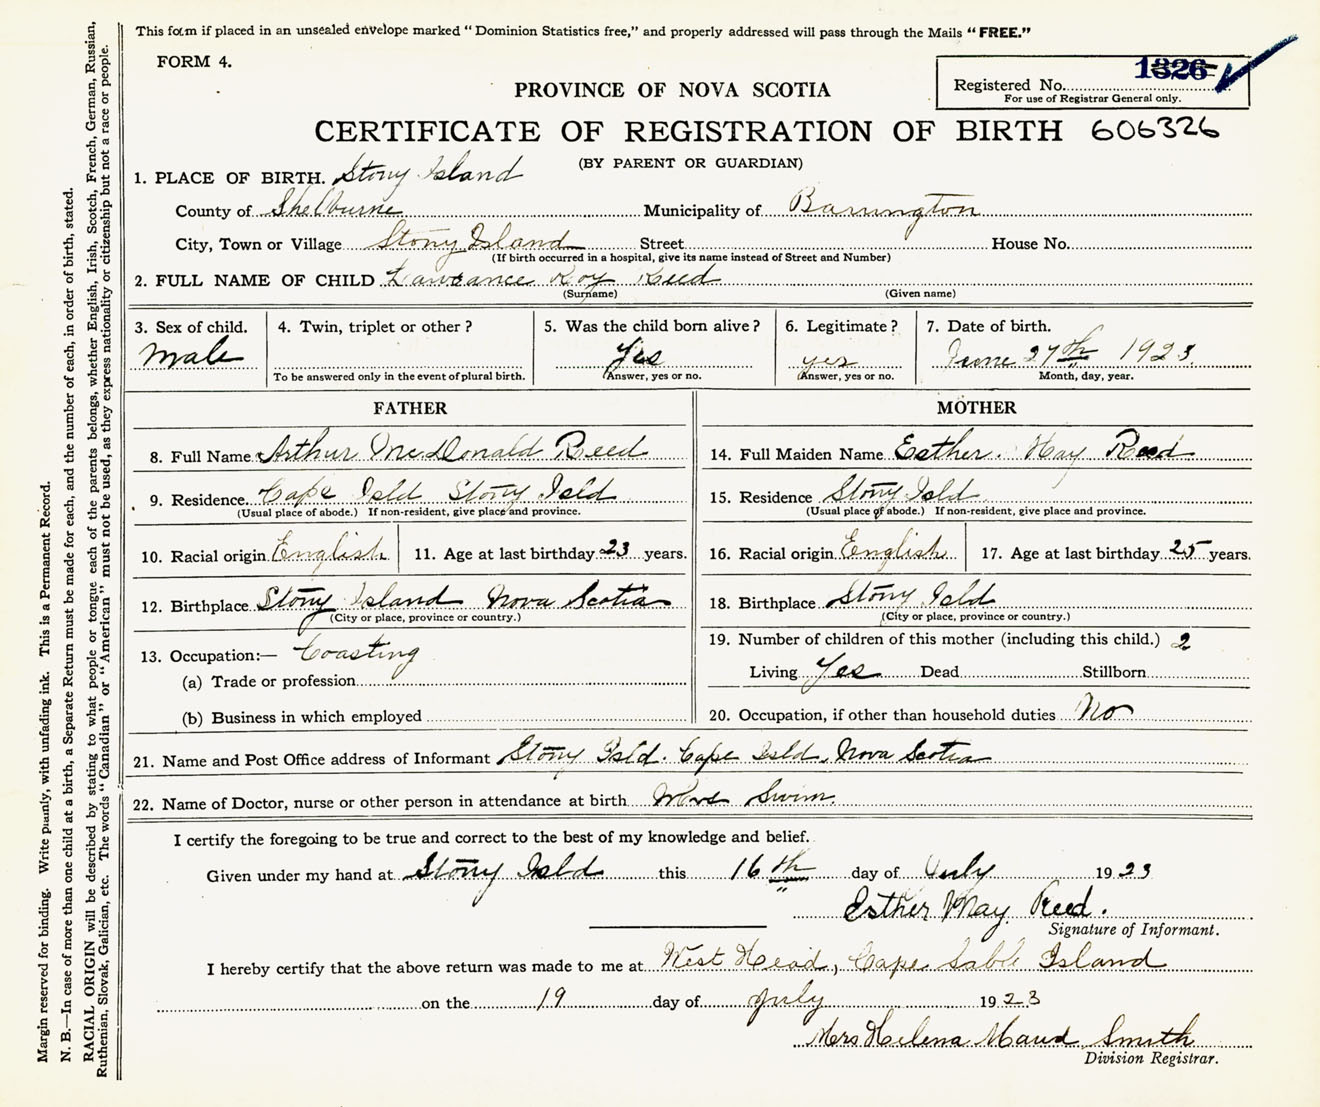 This form if placed in an unsealed envelope marked "Dominion Statistics free," and properly addressed will pass through the Mails "FREE."
FORM 4.
1326
Registered No.
For use of Registrar General only.
PROVINCE OF NOVA SCOTIA
CERTIFICATE OF REGISTRATION OF BIRTH 606326
(BY PARENT OR GUARDIAN)
1. PLACE OF BIRTH. Stony Island
County of Shelburne Municipality of Barrington
City, Town or Village Stony Island Street House No.
(If birth occurred in a hospital, give its name instead of Street and Number)
2. FULL NAME OF CHILD Lawrance Roy Reed
(Surname) (Given name)
3. Sex of child. 4. Twin, triplet or other? 5. Was the child born alive? 6. Legitimate? 7. Date of birth.
Male Yes yes June 27th 1923.
To be answered only in the event of plural birth. Answer, yes or no. (Answer, yes or no. Month, day, year.
FATHER MOTHER
8. Full Name Arthur McDonald Reed 14. Full Maiden Name Esther. May Reed
9. Residence. Cape Isld Stony Isld 15. Residence Stony Isld
(Usual place of abode.) If non-resident, give place and province. (Usual place of abode.) If non-resident, give place and province.
10. Racial origin English 11. Age at last birthday 23 years. 16. Racial origin English 17. Age at last birthday 25 years.
12. Birthplace Stony Island Nova Scotia 18. Birthplace Stony Isld
(City or place, province or country.) (City or place, province or country.)
13. Occupation:— Coasting 19. Number of children of this mother (including this child.) 2
(a) Trade or profession Living Yes Dead Stillborn
(b) Business in which employed 20. Occupation, if other than household duties No
21. Name and Post Office address of Informant Stony Isld. Cape Isld, Nova Scotia
22. Name of Doctor, nurse or other person in attendance at birth Mrs Swim.
I certify the foregoing to be true and correct to the best of my knowledge and belief.
Given under my hand at Stony Isld this 16th day of July 1923
Esther May Reed.
Signature of Informant.
I hereby certify that the above return was made to me at West Head, Cape Sable Island
on the 19 day of July 1923
Mrs Helena Maud Smith
Division Registrar.
Margin reserved for binding. Write plainly, with unfading ink. This is a Permanent Record.
N. B.—In case of more than one child at a birth, a Separate Return must be made for each, and the number of each, in order of birth, stated.
RACIAL ORIGIN will be described by stating to what people or tongue each of the parents belongs, whether English, Irish, Scotch, French, German, Russian,
Ruthenian, Slovak, Galician, etc. The words "Canadian" or "American" must not be used, as they express nationality or citizenship but not a race or people.